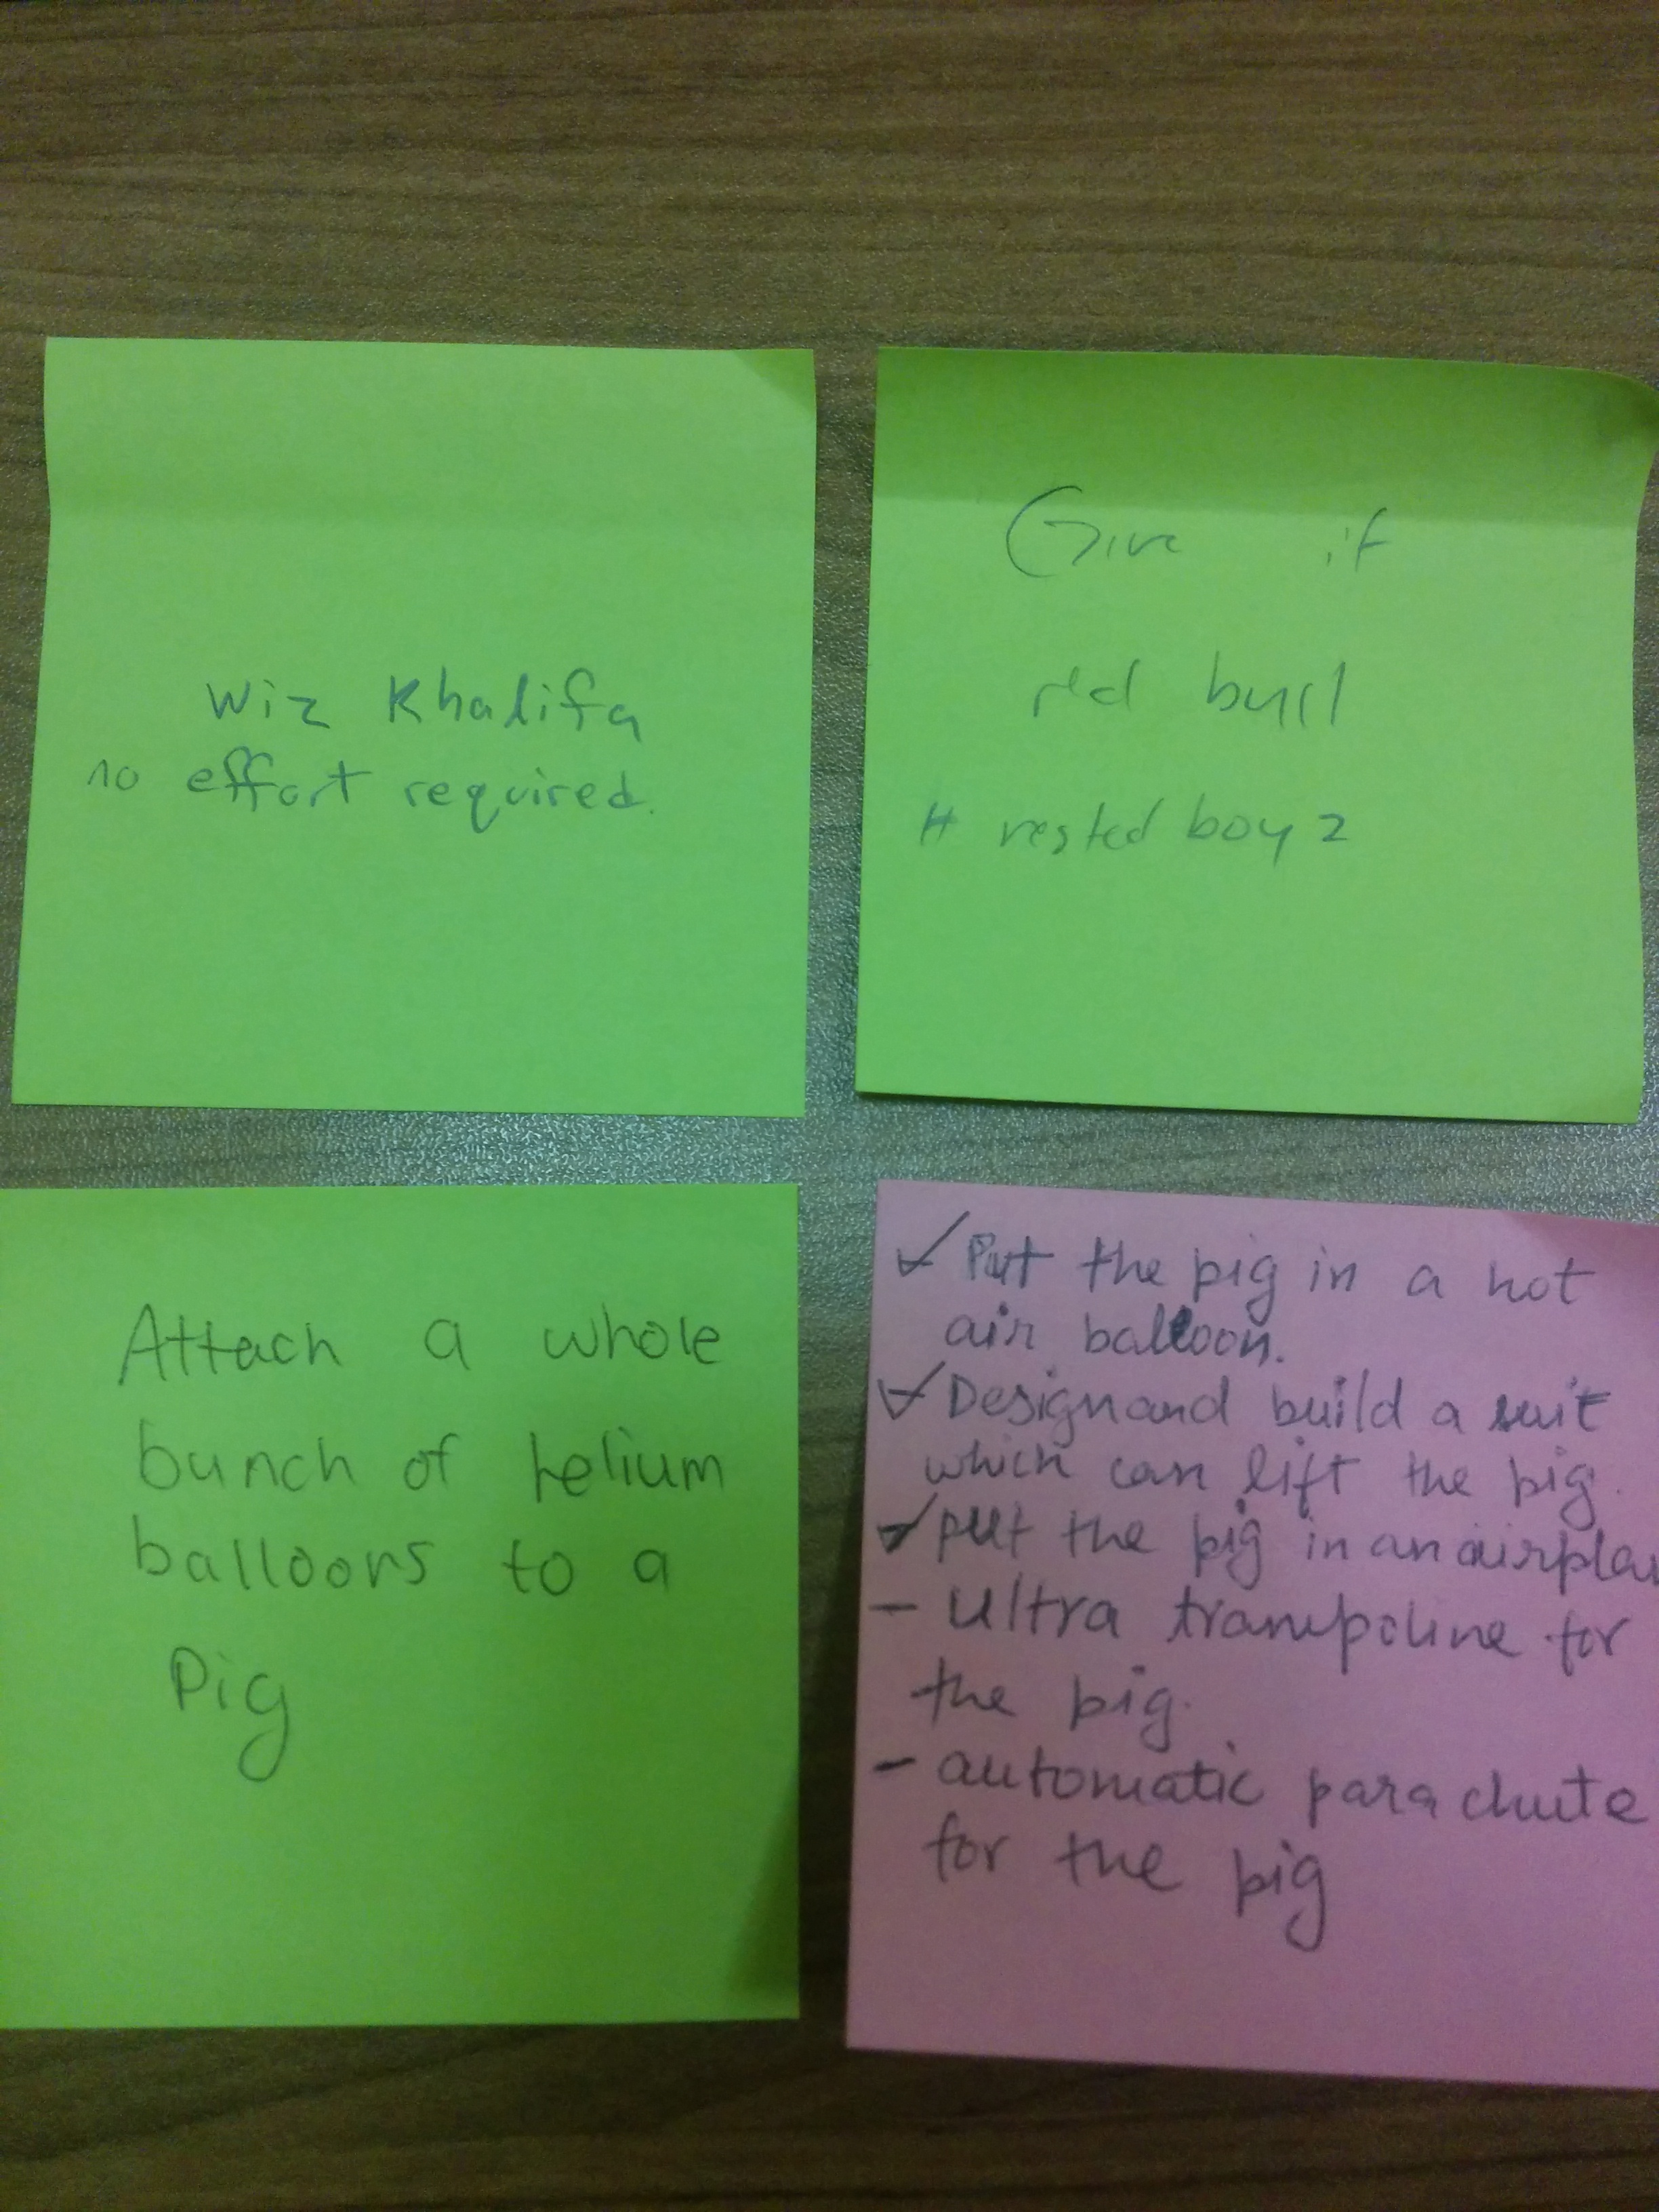 Wiz Khalifa
no effort required.
Give it
red bull
# rested boyz
Attach a whole
bunch of helium
balloons to a
Pig
✓ Put the pig in a hot
air balloon.
✓ Design and build a suit
which can lift the pig.
✓ put the pig in an airplan
- Ultra trampoline for
the pig.
- automatic parachute
for the pig